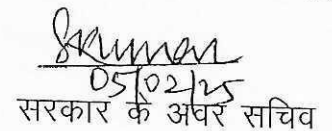 SKumar
05/02/25
सरकार के अवर सचिव